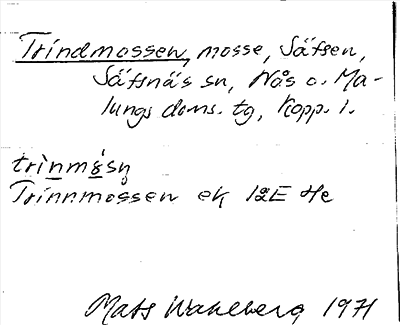 Trindmossen, mosse, Säfsen,
Säfsnäs sn, Nås o. Ma-
lungs doms. tg, Kopp. l.
Trinnmossen ek 12E He
Mats Wahlberg 1971